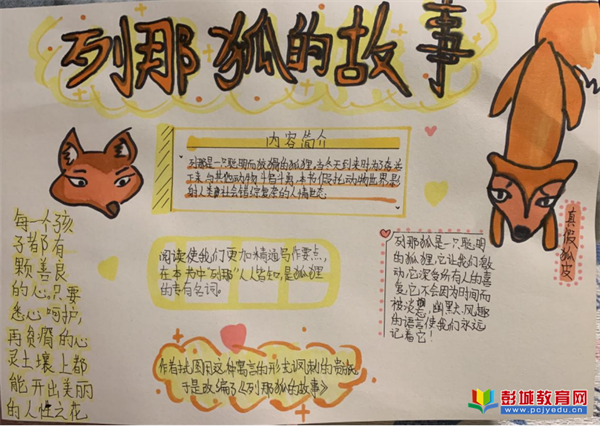 列那狐的故事
内容简介
列那是一只聪明而狡猾的狐狸,当冬天到来时为了存活
下来与其他动物斗智斗勇,本书假托动物世界影
射人类社会错综复杂的人情世态
每一个孩
子都有
一颗善良
的心,只要
悉心呵护,
再贫瘠的心
灵土壤上都
能开出美丽
的人性之花
阅读使我们更加精通写作要点,
在本书中"列那"人人皆知,是狐狸
的专有名词。
作者试图用这种寓言的形式讽刺
于是改编了《列那狐的故事》
列那狐是一只聪明
的狐狸,它让我们激
动,它深受所有人的喜
爱,它不会因为时间而
被淡忘,幽默、风趣
的语言使我们永远
记着它!
真假狐皮
彭城教育网
www.pcjyedu.cn